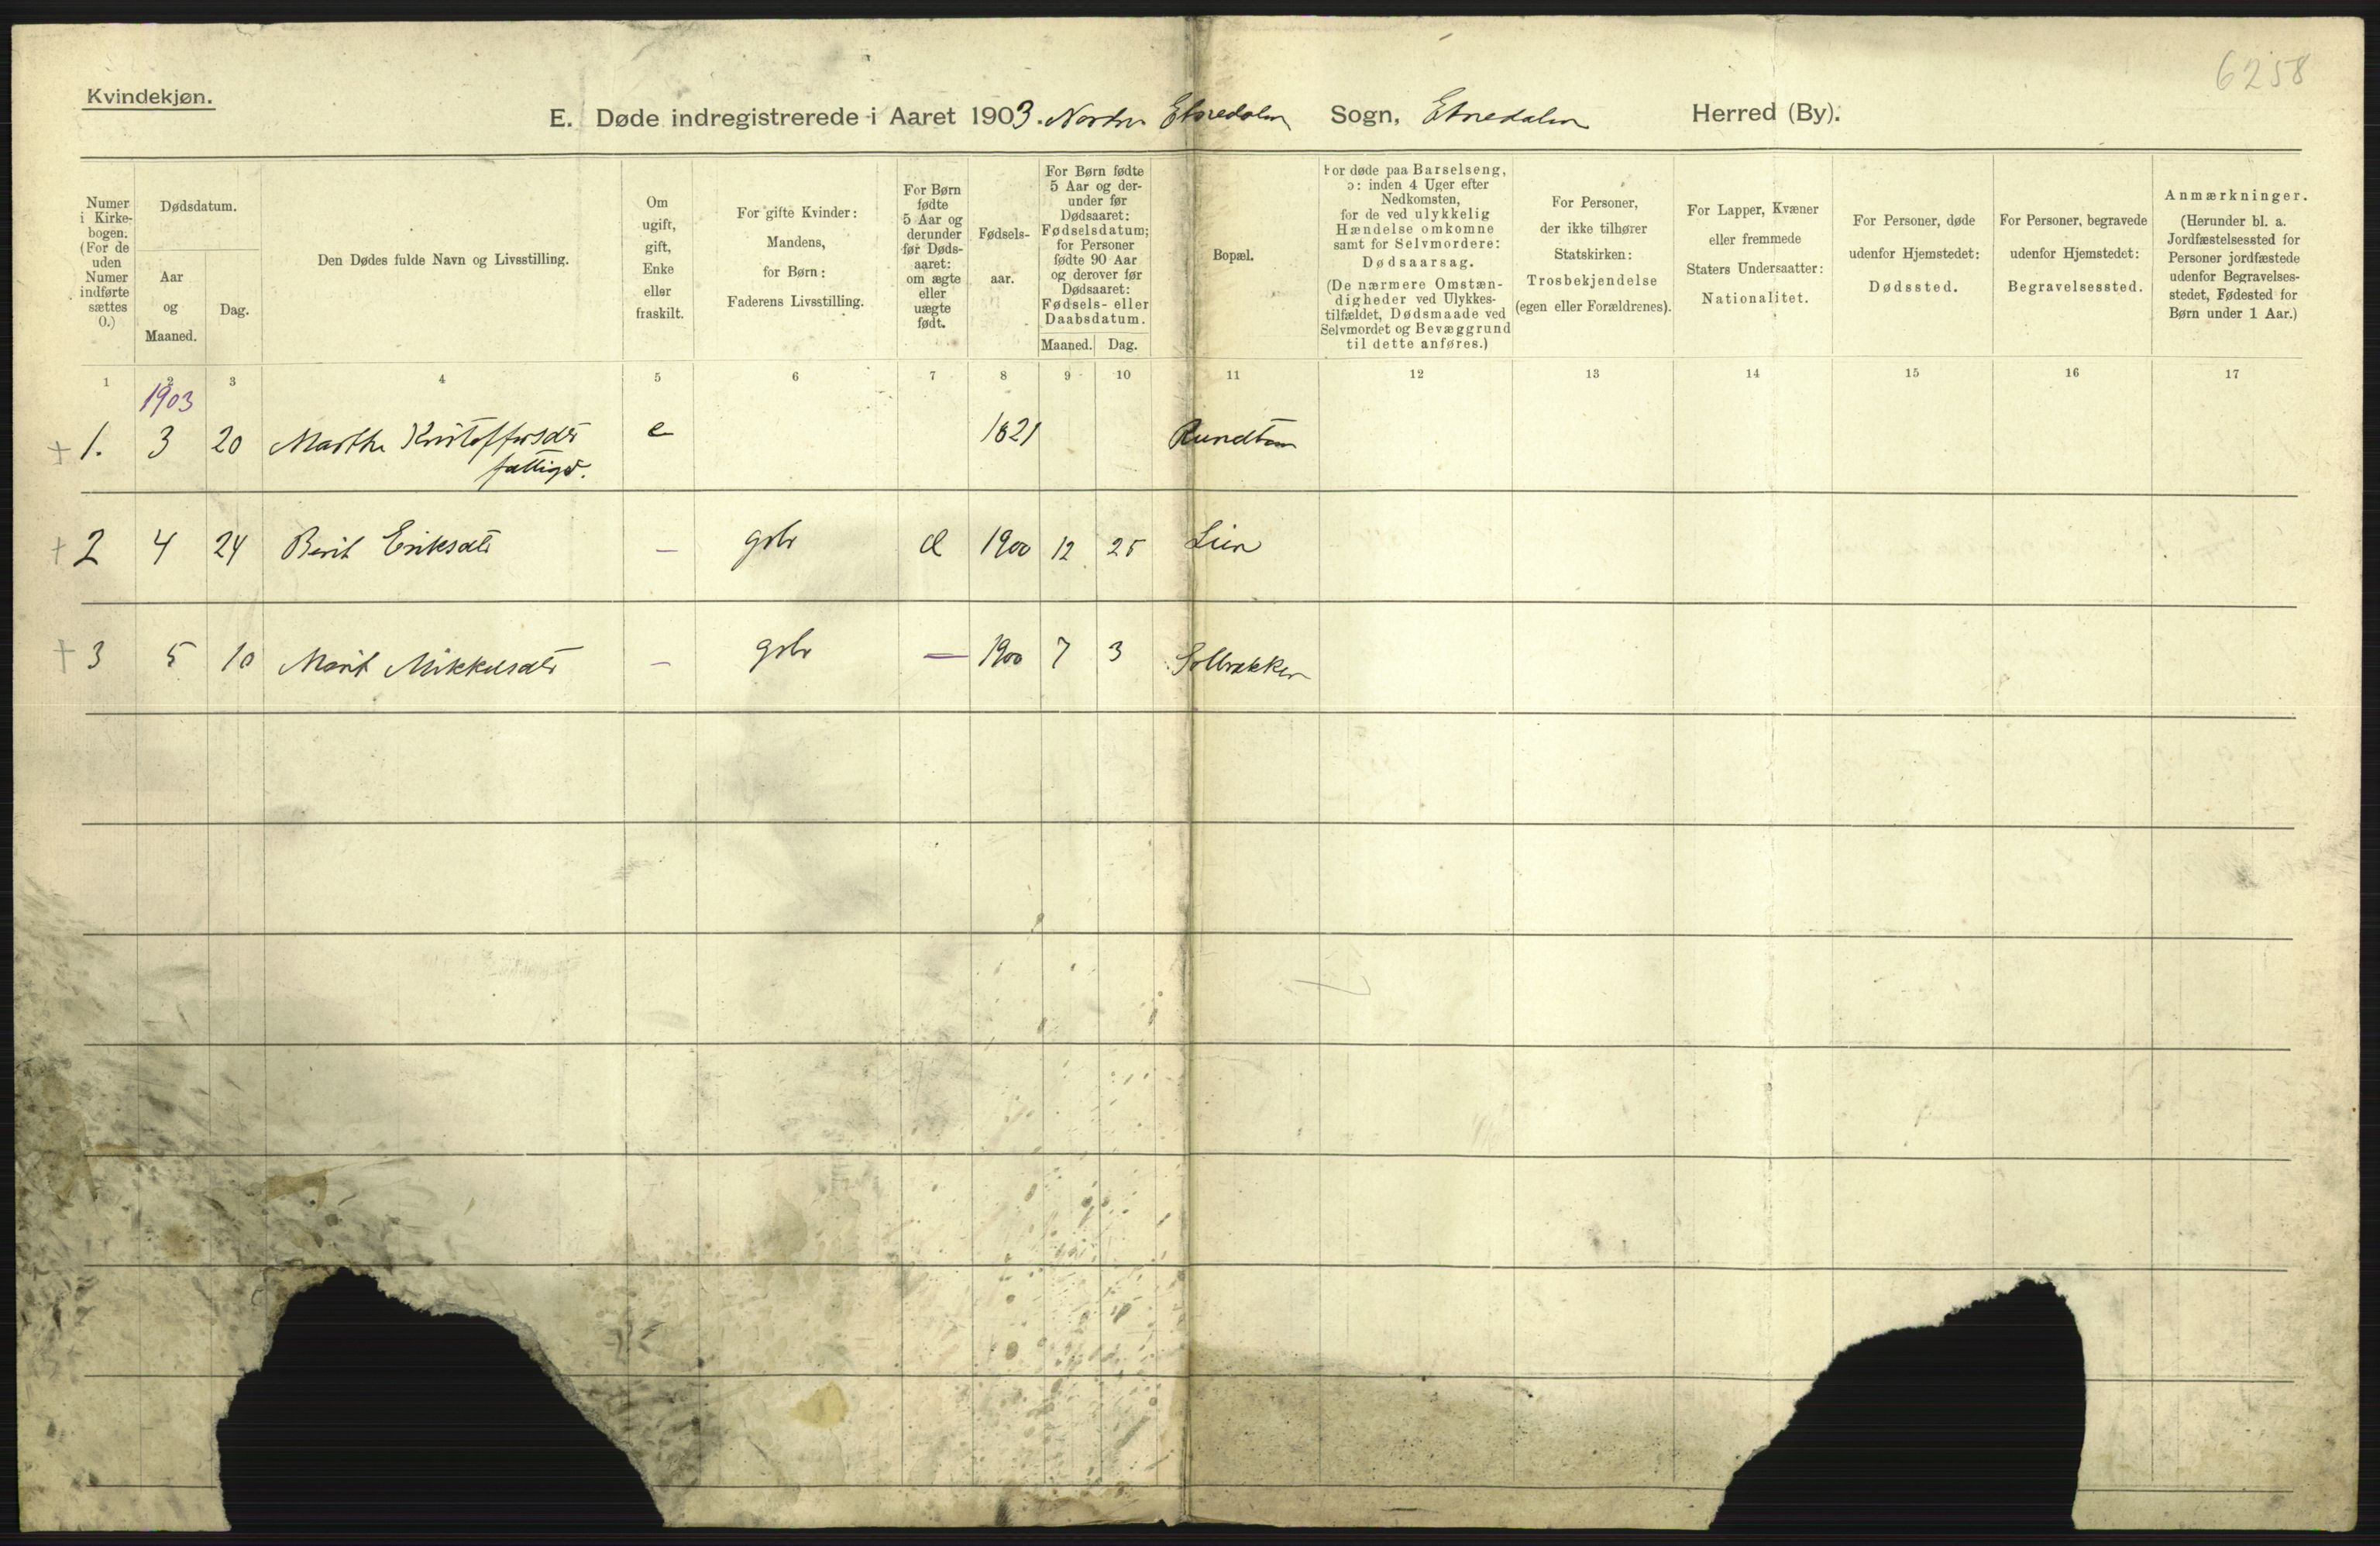 6258
Kvindekjøn.
E. Døde indregistrerede i Aaret 1903. Nordre Etnedalen Sogn, Etnedalen Herred (By).
Numer i Kirkebogen. (For de uden Numer indførte sættes 0.)
Dødsdatum.
Aar og Maaned.
Dag.
Den Dødes fulde Navn og Livsstilling.
Om ugift, gift, Enke eller fraskilt.
For gifte Kvinder: Mandens, for Børn: Faderens Livsstilling.
For Børn fødte 5 Aar og derunder før Dødsaaret: om ægte eller uægte født.
Fødselsaar.
For Børn fødte 5 Aar og derunder før Dødsaaret: Fødselsdatum; for Personer fødte 90 Aar og derover før Dødsaaret: Fødsels- eller Daabsdatum.
Maaned. Dag.
Bopæl.
For døde paa Barselseng, ɔ: inden 4 Uger efter Nedkomsten, for de ved ulykkelig Hændelse omkomne samt for Selvmordere: Dødsaarsag.
(De nærmere Omstændigheder ved Ulykkestilfældet, Dødsmaade ved Selvmordet og Bevæggrund til dette anføres.)
For Personer, der ikke tilhører Statskirken: Trosbekjendelse (egen eller Forældrenes).
For Lapper, Kvæner eller fremmede Staters Undersaatter: Nationalitet.
For Personer, døde udenfor Hjemstedet: Dødssted.
For Personer, begravede udenfor Hjemstedet: Begravelsessted.
Anmærkninger.
(Herunder bl. a. Jordfæstelsessted for Personer jordfæstede udenfor Begravelsesstedet, Fødested for Børn under 1 Aar.)
1 2 3 4 5 6 7 8 9 10 11 12 13 14 15 16 17
1903
+ 1. 3 20 Marthe Kristoffersdtr e 1821 Rundtom
fattigd.
+ 2 4 24 Berit Eriksdtr — gbr 1900 12 25 Lien
+ 3 5 10 Marit Mikkelsdtr — gbr — 1900 7 3